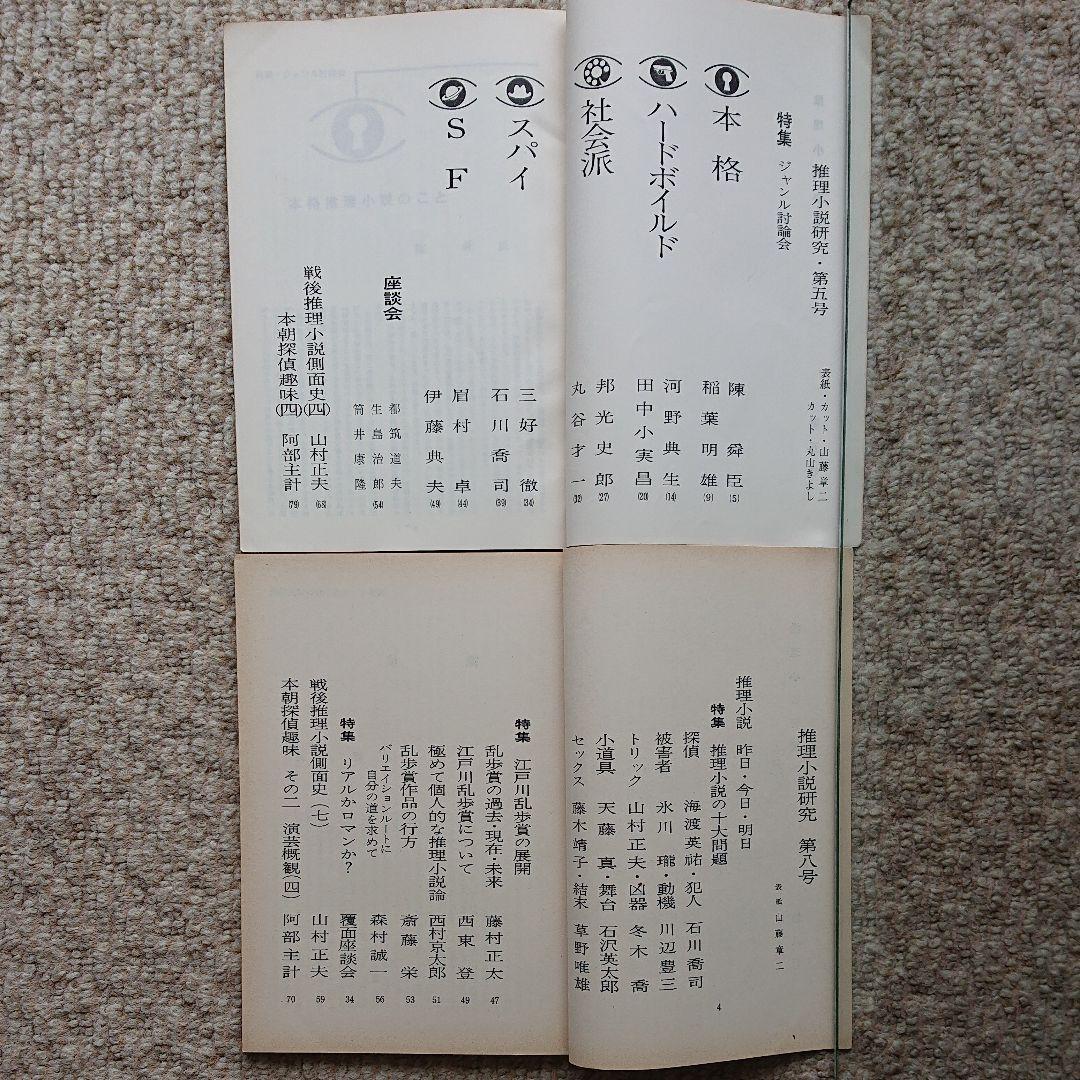 推理小説研究・第五号
表紙・カット・山藤章二
カット・丸山きよし
特集 ジャンル討論会
本格
陳舜臣 (5)
稲葉明雄 (9)
ハード・ボイルド
河野典生 (14)
田中小実昌 (20)
社会派
邦光史郎 (27)
丸谷才一 (32)
スパイ
三好徹 (34)
石川喬司 (39)
SF
眉村卓 (44)
伊藤典夫 (49)
座談会
都筑道夫
生島治郎 (54)
筒井康隆
戦後推理小説側面史(四) 山村正夫 (68)
本朝探偵趣味(四) 阿部主計 (79)
本格推理小説のこと
推理小説研究 第八号
表紙 山藤章二
推理小説 昨日・今日・明日
特集 推理小説の十大問題 4
探偵 海渡英祐・犯人 石川喬司
被害者 氷川瓏・動機 川辺豊三
トリック 山村正夫・凶器 冬木喬
小道具 天藤真・舞台 石沢英太郎
セックス 藤木靖子・結末 草野唯雄
特集 江戸川乱歩賞の展開
乱歩賞の過去・現在・未来 藤村正太 47
江戸川乱歩賞について 西東登 49
極めて個人的な推理小説論 西村京太郎 51
乱歩賞作品の行方 斎藤栄 53
バリエイションルートに
自分の道を求めて 森村誠一 56
特集 リアルかロマンか? 覆面座談会 34
戦後推理小説側面史(七) 山村正夫 59
本朝探偵趣味 その二 演芸概観(四) 阿部主計 70